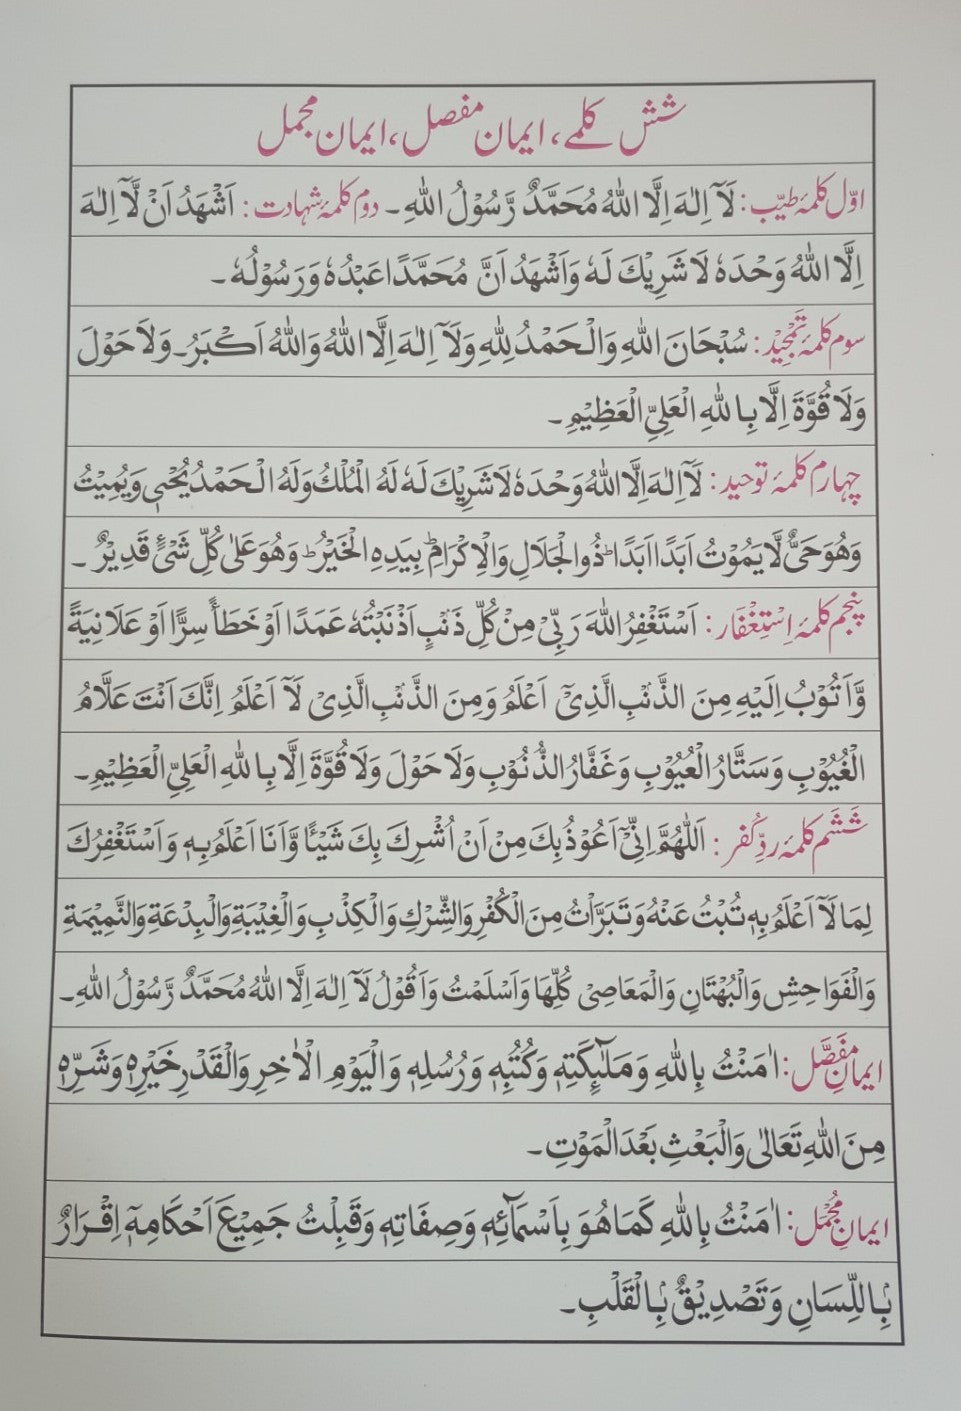 شش کلمے، ایمان مفصل، ایمان مجمل
اوّل کلمۂ طیّب: لَآ اِلٰہَ اِلَّا اللّٰهُ مُحَمَّدٌ رَّسُوْلُ اللّٰهِ۔ دوم کلمۂ شہادت: اَشْهَدُ اَنْ لَّآ اِلٰہَ
اِلَّا اللّٰهُ وَحْدَهٗ لَا شَرِيْكَ لَهٗ وَاَشْهَدُ اَنَّ مُحَمَّدًا عَبْدُهٗ وَرَسُوْلُهٗ۔
سوم کلمۂ تَمْجِیْد: سُبْحَانَ اللّٰهِ وَالْحَمْدُ لِلّٰهِ وَلَآ اِلٰہَ اِلَّا اللّٰهُ وَاللّٰهُ اَكْبَرُ۔ وَلَا حَوْلَ
وَلَا قُوَّةَ اِلَّا بِاللّٰهِ الْعَلِيِّ الْعَظِيْمِ۔
چہارم کلمۂ توحید: لَآ اِلٰہَ اِلَّا اللّٰهُ وَحْدَهٗ لَا شَرِيْكَ لَهٗ لَهُ الْمُلْكُ وَلَهُ الْحَمْدُ يُحْيٖ وَيُمِيْتُ
وَهُوَ حَيٌّ لَّا يَمُوْتُ اَبَدًا اَبَدًا ؕ ذُو الْجَلَالِ وَالْاِكْرَامِ ؕ بِيَدِهِ الْخَيْرُ ؕ وَهُوَ عَلٰى كُلِّ شَیْءٍ قَدِيْرٌ۔
پنجم کلمۂ اِسْتِغْفَار: اَسْتَغْفِرُ اللّٰهَ رَبِّيْ مِنْ كُلِّ ذَنْۢبٍ اَذْنَبْتُهٗ عَمَدًا اَوْ خَطَأً سِرًّا اَوْ عَلَانِيَةً
وَّاَتُوْبُ اِلَيْهِ مِنَ الذَّنْۢبِ الَّذِيْٓ اَعْلَمُ وَمِنَ الذَّنْۢبِ الَّذِيْ لَآ اَعْلَمُ اِنَّكَ اَنْتَ عَلَّامُ
الْغُيُوْبِ وَسَتَّارُ الْعُيُوْبِ وَغَفَّارُ الذُّنُوْبِ وَلَا حَوْلَ وَلَا قُوَّةَ اِلَّا بِاللّٰهِ الْعَلِيِّ الْعَظِيْمِ۔
شَشَم کلمۂ ردِّ کُفر: اَللّٰهُمَّ اِنِّيْٓ اَعُوْذُ بِكَ مِنْ اَنْ اُشْرِكَ بِكَ شَيْئًا وَّاَنَا اَعْلَمُ بِهٖ وَاَسْتَغْفِرُكَ
لِمَا لَآ اَعْلَمُ بِهٖ تُبْتُ عَنْهُ وَتَبَرَّأْتُ مِنَ الْكُفْرِ وَالشِّرْكِ وَالْكِذْبِ وَالْغِيْبَةِ وَالْبِدْعَةِ وَالنَّمِيْمَةِ
وَالْفَوَاحِشِ وَالْبُهْتَانِ وَالْمَعَاصِيْ كُلِّهَا وَاَسْلَمْتُ وَاَقُوْلُ لَآ اِلٰہَ اِلَّا اللّٰهُ مُحَمَّدٌ رَّسُوْلُ اللّٰهِ۔
ایمانِ مفَصَّل: اٰمَنْتُ بِاللّٰهِ وَمَلٰٓئِكَتِهٖ وَكُتُبِهٖ وَرُسُلِهٖ وَالْيَوْمِ الْاٰخِرِ وَالْقَدْرِ خَيْرِهٖ وَشَرِّهٖ
مِنَ اللّٰهِ تَعَالٰى وَالْبَعْثِ بَعْدَ الْمَوْتِ۔
ایمانِ مُجْمَل: اٰمَنْتُ بِاللّٰهِ كَمَا هُوَ بِاَسْمَآئِهٖ وَصِفَاتِهٖ وَقَبِلْتُ جَمِيْعَ اَحْكَامِهٖٓ اِقْرَارٌ
بِۢاللِّسَانِ وَتَصْدِيْقٌ بِۢالْقَلْبِ۔